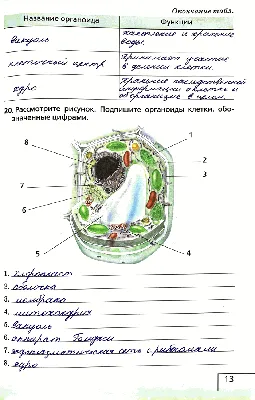 Окончание табл.
Название органоида Функции
вакуоль накопление и хранение
воды.
клеточный центр принимает участие
в делении клетки.
ядро хранение наследственной
информации о клетке и
об организме в целом.
20. Рассмотрите рисунок. Подпишите органоиды клетки, обо-
значенные цифрами.
8
1
2
7
3
6
5
4
1. хлоропласт
2. оболочка
3. мембрана
4. митохондрия
5. вакуоль
6. аппарат Гольджи
7. эндоплазматическая сеть с рибосомами
8. ядро
13